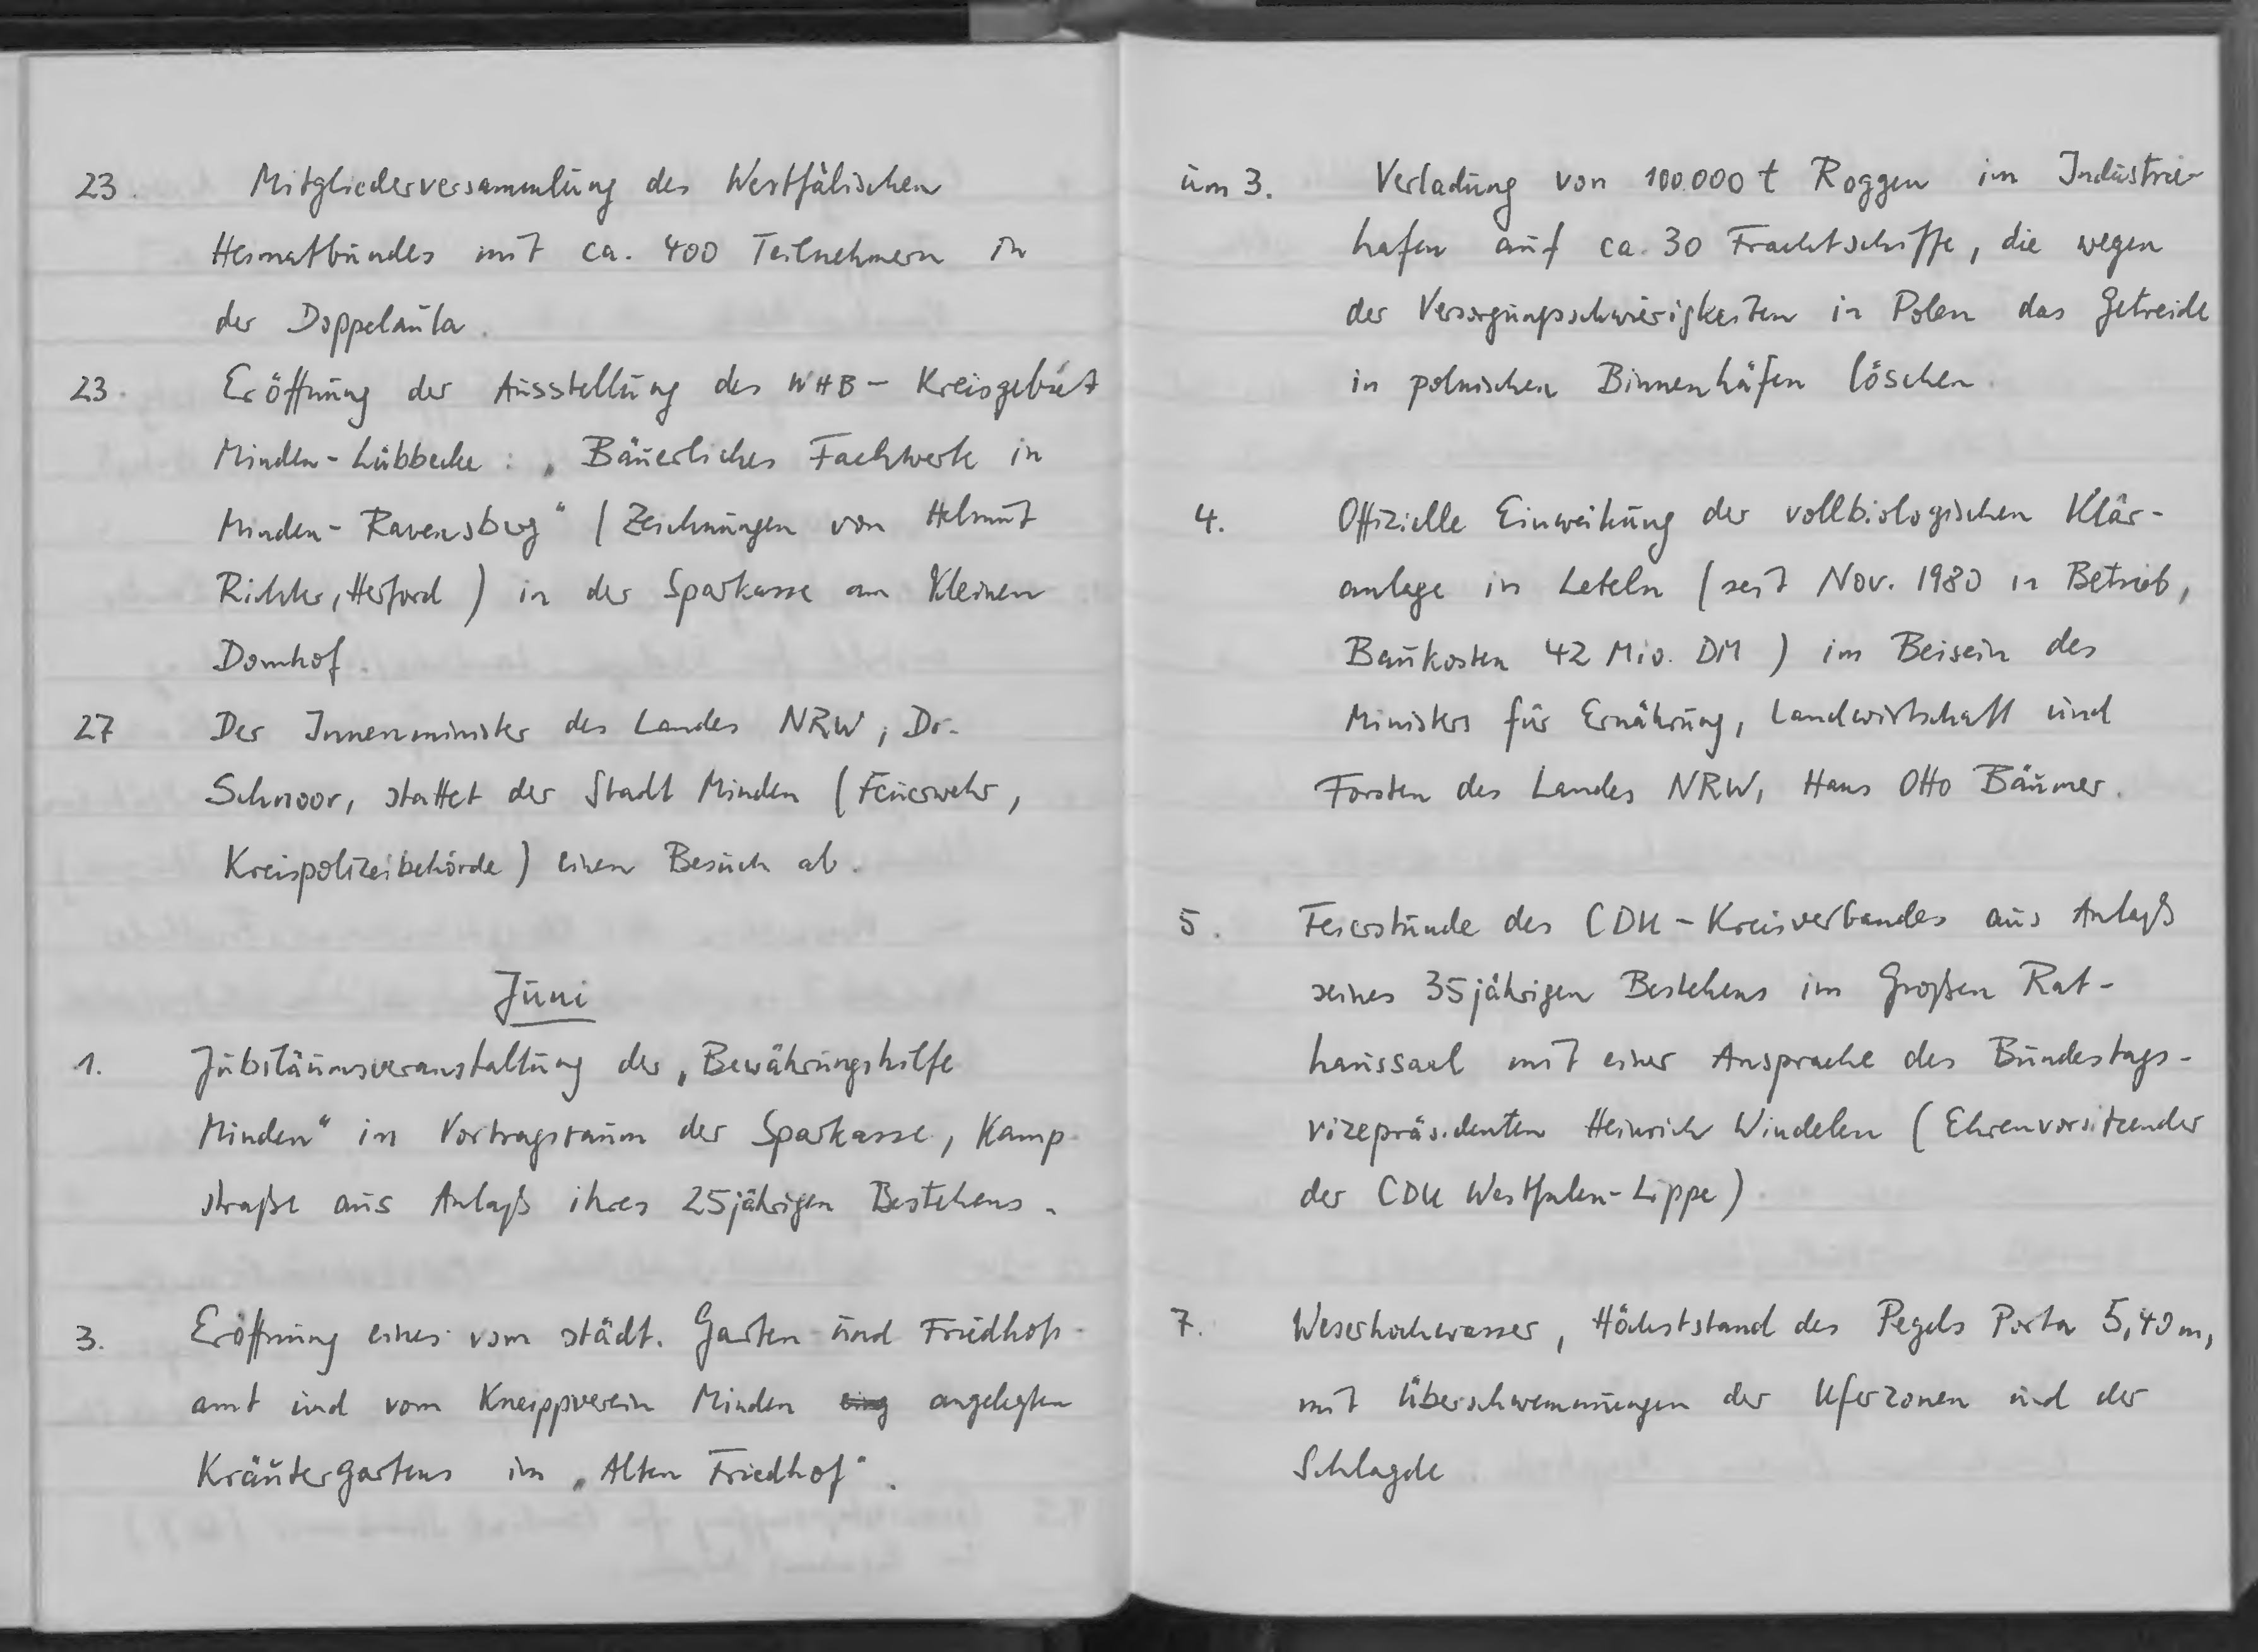 23. Mitgliederversammlung des Westfälischen
Heimatbundes mit ca. 400 Teilnehmern in
der Doppelaula.
23. Eröffnung der Ausstellung des WHB - Kreisgebiet
Minden-Lübbecke: „Bäuerliches Fachwerk in
Minden-Ravensberg" (Zeichnungen von Helmut
Richter, Herford) in der Sparkasse am Kleinen
Domhof.
27 Der Innenminister des Landes NRW, Dr.
Schnoor, stattet der Stadt Minden (Feuerwehr,
Kreispolizeibehörde) einen Besuch ab.
Juni
1. Jubiläumsveranstaltung der „Bewährungshilfe
Minden" im Vortragsraum der Sparkasse, Kamp-
straße aus Anlaß ihres 25jährigen Bestehens.
3. Eröffnung eines vom städt. Garten- und Friedhofs-
amt und vom Kneippverein Minden eing angelegten
Kräutergartens im „Alten Friedhof".
um 3. Verladung von 100.000 t Roggen im Industrie-
hafen auf ca. 30 Frachtschiffe, die wegen
der Versorgungsschwierigkeiten in Polen das Getreide
in polnischen Binnenhäfen löschen.
4. Offizielle Einweihung der vollbiologischen Klär-
anlage in Leteln (seit Nov. 1980 in Betrieb,
Baukosten 42 Mio. DM) im Beisein des
Ministers für Ernährung, Landwirtschaft und
Forsten des Landes NRW, Hans Otto Bäumer.
5. Feierstunde des CDU-Kreisverbandes aus Anlaß
seines 35jährigen Bestehens im Großen Rat-
haussaal mit einer Ansprache des Bundestags-
vizepräsidenten Heinrich Windelen (Ehrenvorsitzender
der CDU Westfalen-Lippe).
7. Weserhochwasser, Höchststand des Pegels Porta 5,40 m,
mit Überschwemmungen der Uferzonen und der
Schlagde